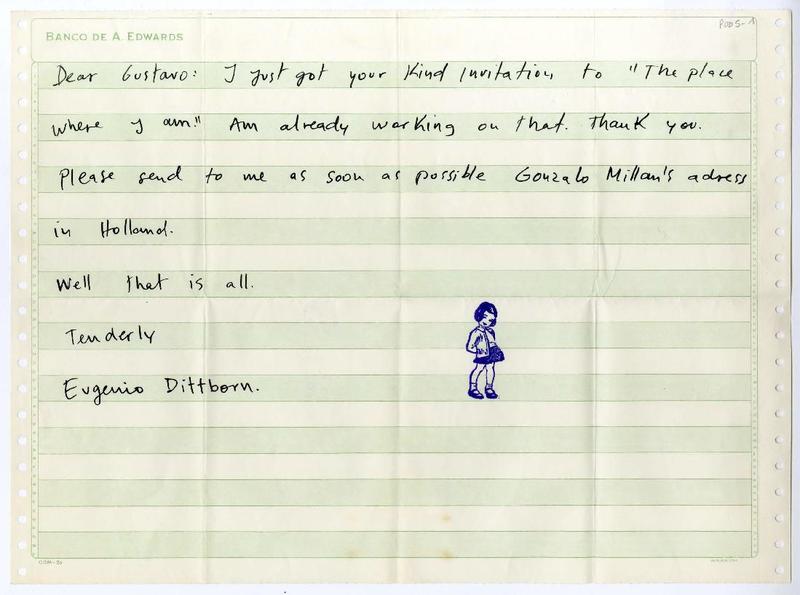 R005-1
BANCO DE A. EDWARDS
Dear Gustavo: I just got your kind invitation to "The place
where I am." Am already working on that. Thank you.
Please send to me as soon as possible Gonzalo Millan's adress
in Holland.
Well that is all.
Tenderly
Eugenio Dittborn.